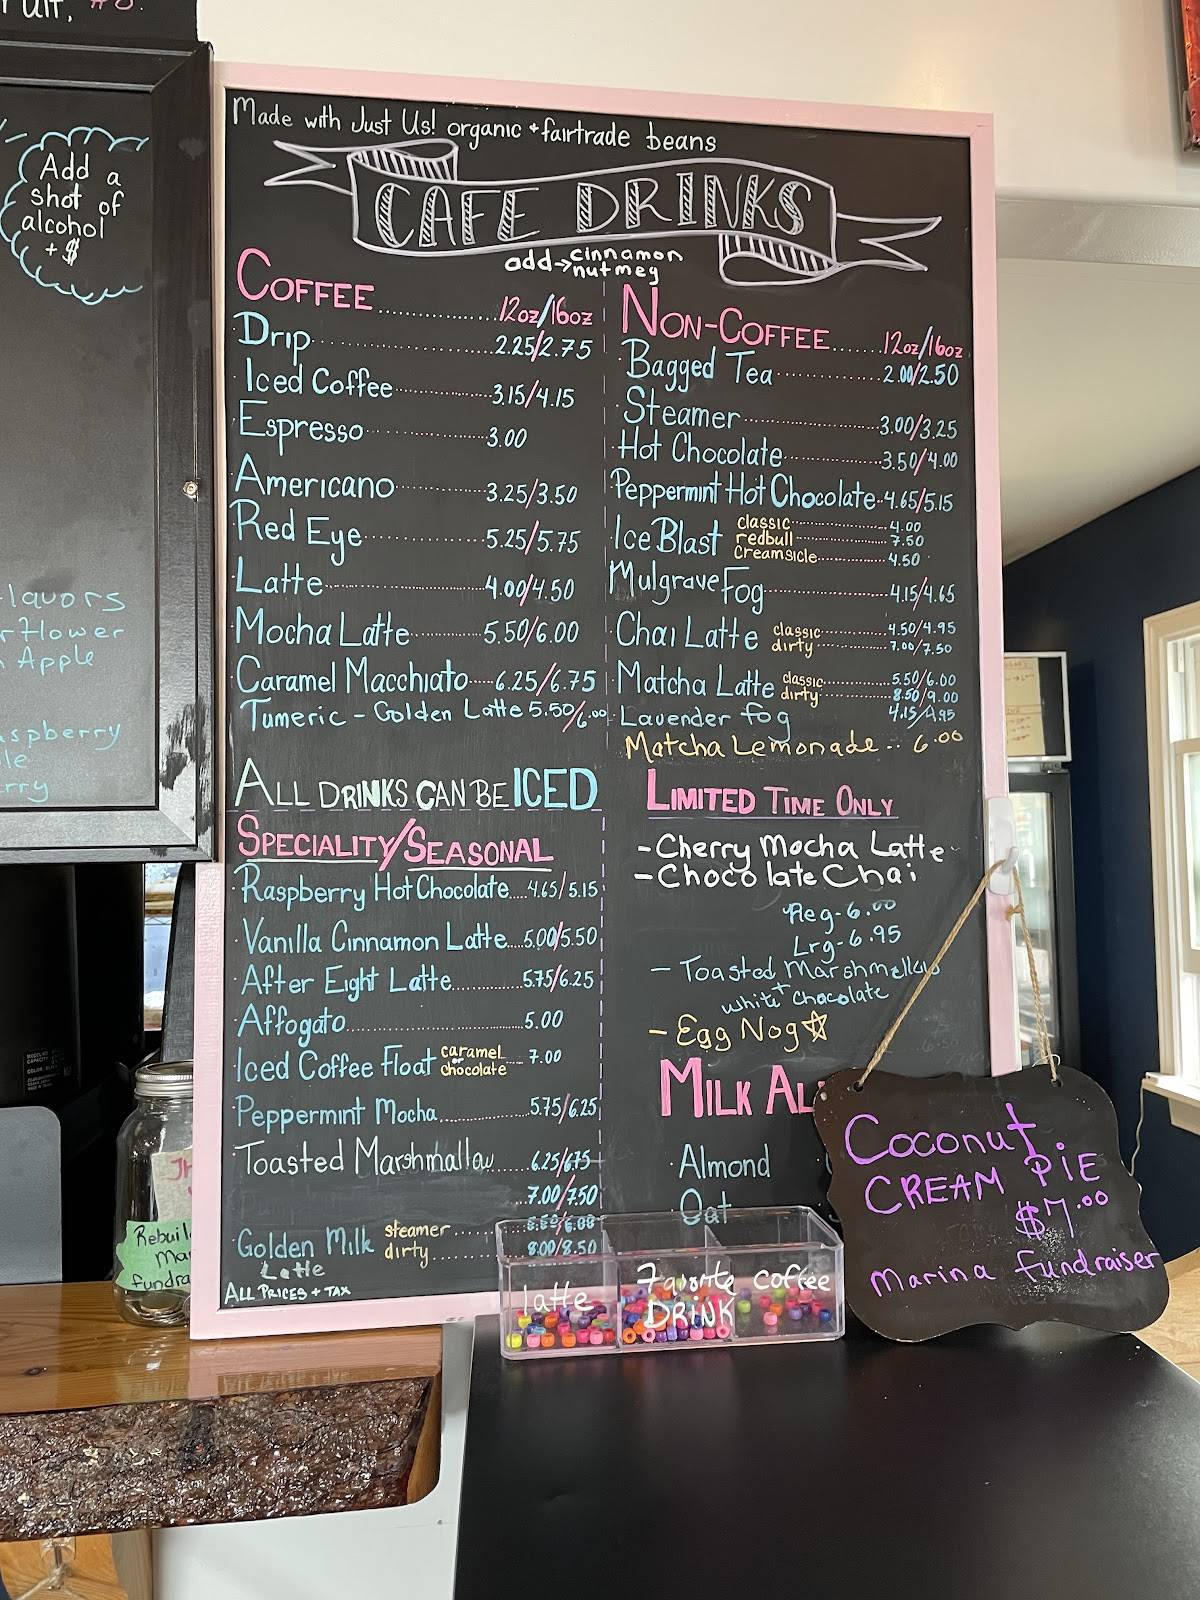 Add a
shot of
alcohol
+ $
Made with Just Us! organic + fairtrade beans
CAFE DRINKS
add → cinnamon
nutmeg
COFFEE 12oz/16oz
Drip 2.25/2.75
Iced Coffee 3.15/4.15
Espresso 3.00
Americano 3.25/3.50
Red Eye 5.25/5.75
Latte 4.00/4.50
Mocha Latte 5.50/6.00
Caramel Macchiato 6.25/6.75
Tumeric - Golden Latte 5.50/6.00
ALL DRINKS CAN BE ICED
SPECIALITY/SEASONAL
Raspberry Hot Chocolate 4.65/5.15
Vanilla Cinnamon Latte 5.00/5.50
After Eight Latte 5.75/6.25
Affogato 5.00
Iced Coffee Float caramel or chocolate 7.00
Peppermint Mocha 5.75/6.25
Toasted Marshmallow 6.25/6.75
7.00/7.50
Golden Milk steamer
dirty 8.00/8.50
Latte
ALL PRICES + TAX
NON-COFFEE 12oz/16oz
Bagged Tea 2.00/2.50
Steamer 3.00/3.25
Hot Chocolate 3.50/4.00
Peppermint Hot Chocolate 4.65/5.15
Ice Blast classic 4.00
redbull 7.50
creamsicle 4.50
Mulgrave Fog 4.15/4.65
Chai Latte classic 4.50/4.95
dirty 7.00/7.50
Matcha Latte classic 5.50/6.00
dirty 8.50/9.00
Lavender fog 4.15/4.95
Matcha Lemonade .. 6.00
LIMITED TIME ONLY
- Cherry Mocha Latte
- Chocolate Chai
Reg - 6.00
Lrg - 6.95
- Toasted Marshmellow
white + chocolate
- Egg Nog
MILK AL
Almond
Oat
Coconut
CREAM PIE
$7.00
Marina fundraiser
latte
Favorite
DRINK
coffee
Rebuil
Ma
fundra